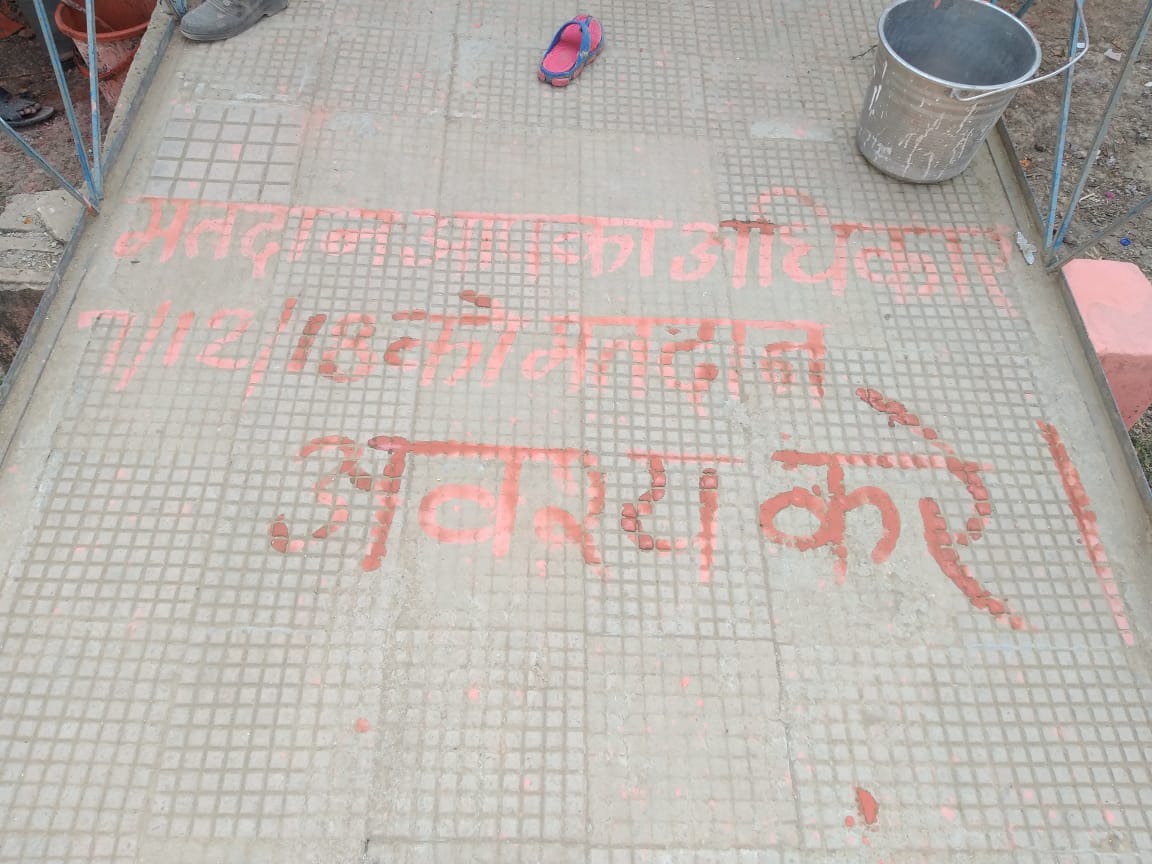 मतदान आप का अधिकार
7/12/18 को मतदान
अवश्य करे।